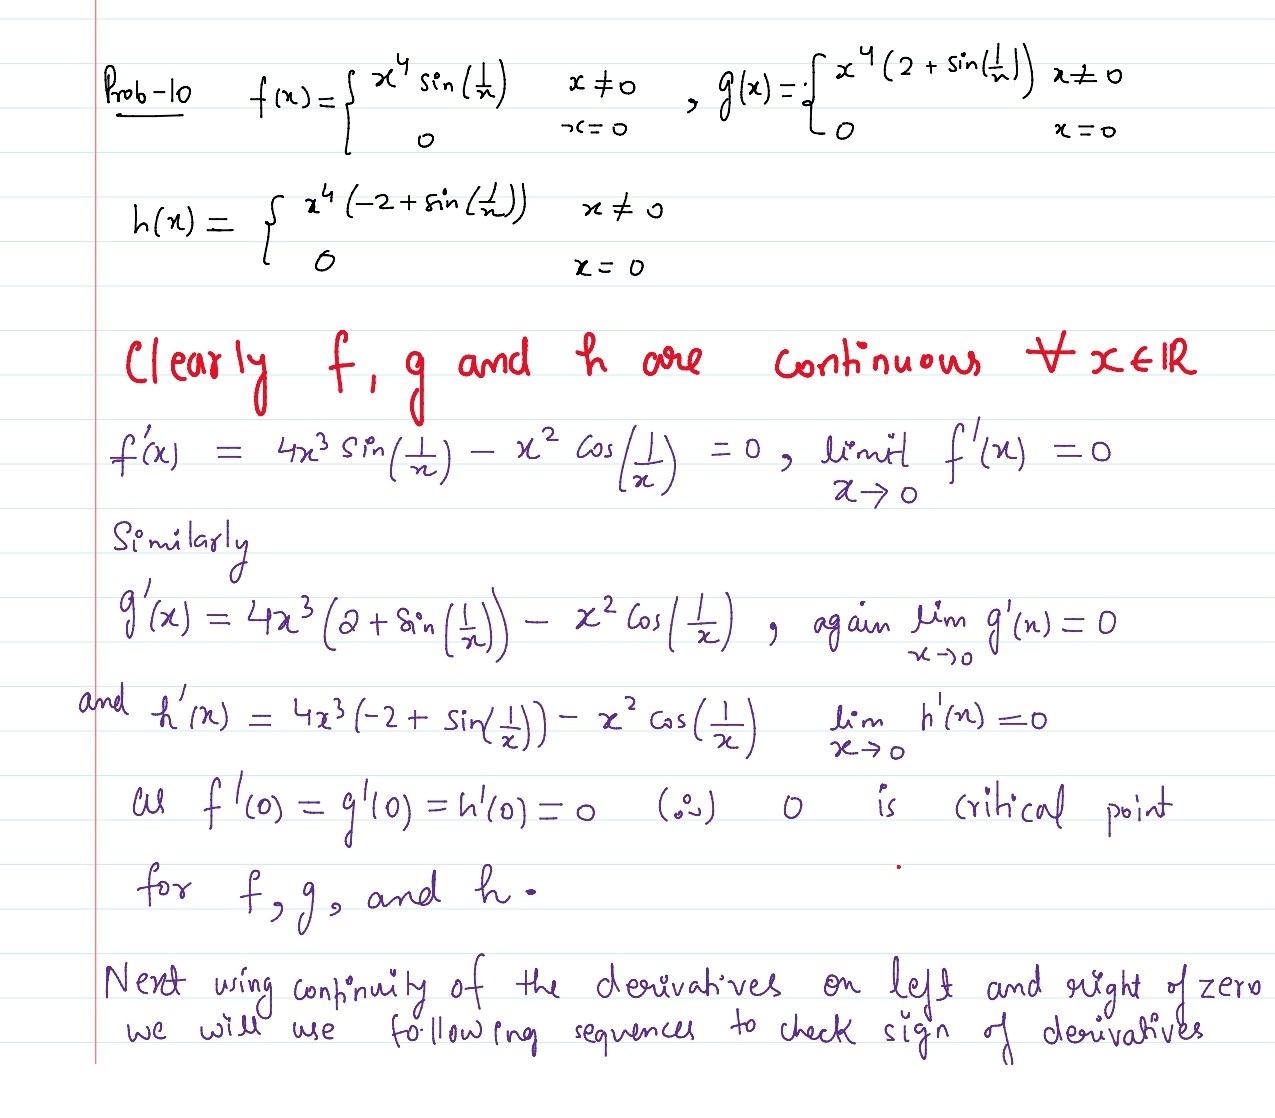 Prob-10 f(x) = { x⁴ sin(1/x) x ≠ 0 , g(x) = { x⁴(2 + sin(1/x)) x ≠ 0
0 x = 0 0 x = 0
h(x) = { x⁴(-2 + sin(1/x)) x ≠ 0
0 x = 0
Clearly f, g and h are continuous ∀ x ∈ ℝ
f'(x) = 4x³ sin(1/x) - x² cos(1/x) = 0 , limit x→0 f'(x) = 0
Similarly
g'(x) = 4x³(2 + sin(1/x)) - x² cos(1/x) , again lim x→0 g'(x) = 0
and h'(x) = 4x³(-2 + sin(1/x)) - x² cos(1/x) lim x→0 h'(x) = 0
as f'(0) = g'(0) = h'(0) = 0 (∵) 0 is critical point
for f, g, and h.
Next using continuity of the derivatives on left and right of zero
we will use following sequences to check sign of derivatives